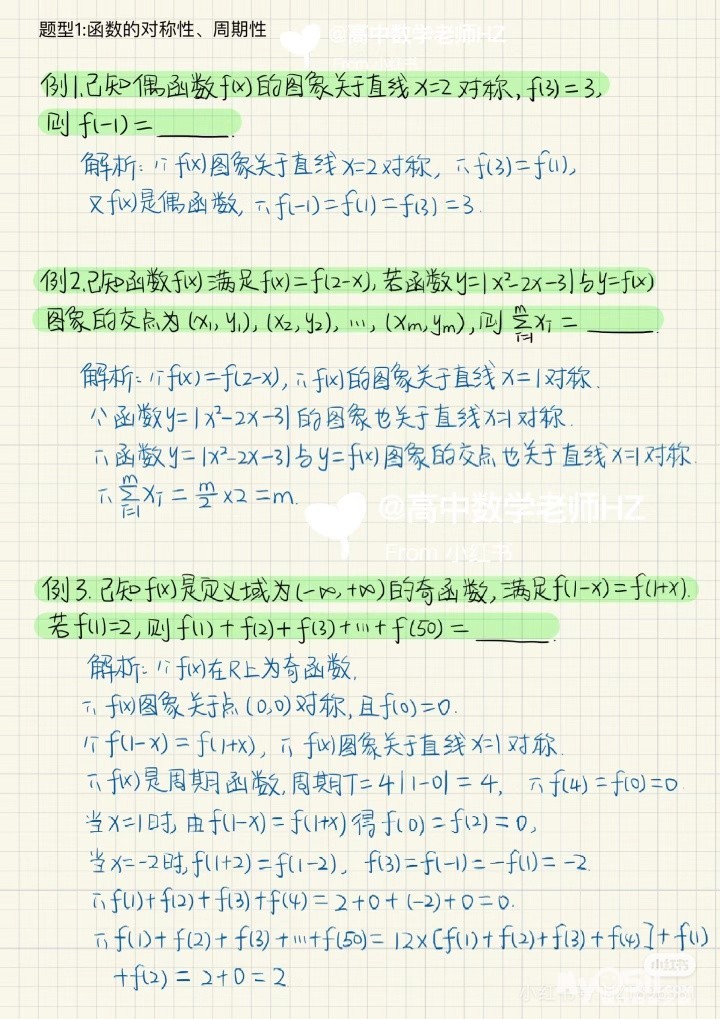 题型1:函数的对称性、周期性
@高中数学老师HZ
例1.已知偶函数f(x)的图象关于直线x=2对称,f(3)=3,
则f(-1)=______.
解析:∵f(x)图象关于直线x=2对称,∴f(3)=f(1),
又f(x)是偶函数,∴f(-1)=f(1)=f(3)=3.
例2.已知函数f(x)满足f(x)=f(2-x),若函数y=|x²-2x-3|与y=f(x)
图象的交点为(x₁,y₁),(x₂,y₂),…,(xₘ,yₘ),则∑ᵢ₌₁ᵐxᵢ=______.
解析:∵f(x)=f(2-x),∴f(x)的图象关于直线x=1对称.
又函数y=|x²-2x-3|的图象也关于直线x=1对称.
∴函数y=|x²-2x-3|与y=f(x)图象的交点也关于直线x=1对称.
∴∑ᵢ₌₁ᵐxᵢ=m/2×2=m.
@高中数学老师HZ
From 小红书
例3.已知f(x)是定义域为(-∞,+∞)的奇函数,满足f(1-x)=f(1+x).
若f(1)=2,则f(1)+f(2)+f(3)+…+f(50)=______.
解析:∵f(x)在R上为奇函数,
∴f(x)图象关于点(0,0)对称,且f(0)=0.
∵f(1-x)=f(1+x),∴f(x)图象关于直线x=1对称.
∴f(x)是周期函数,周期T=4|1-0|=4,∴f(4)=f(0)=0.
当x=1时,由f(1-x)=f(1+x)得f(0)=f(2)=0,
当x=-2时,f(1+2)=f(1-2),f(3)=f(-1)=-f(1)=-2.
∴f(1)+f(2)+f(3)+f(4)=2+0+(-2)+0=0.
∴f(1)+f(2)+f(3)+…+f(50)=12×[f(1)+f(2)+f(3)+f(4)]+f(1)
+f(2)=2+0=2
小红书